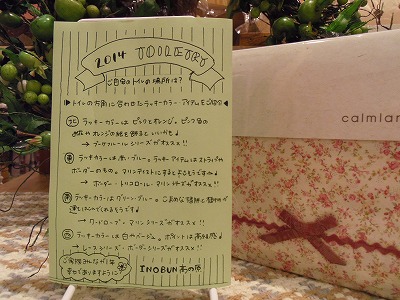 2014 TOILETRY
ご自宅のトイレの場所は?
トイレの方角に合わせたラッキーカラー・アイテムをご紹介
北 ラッキーカラーはピンクとオレンジ。ピンク色の
花やオレンジの絵を飾るといいかも♪
→ シリーズがオススメ!!
東 ラッキーカラーは赤・ブルー。ラッキーアイテムはストライプや
ボーダーのもの。マリンテイストにするとよるそうですよ
→ ボーダー・トリコロール・マリンがオススメ!!
南 ラッキーカラーはグリーン・ブルー。こまめな掃除と
→ ・マリンシリーズがオススメ!!
西 ラッキーカラーは白やベージュ。ポイントは高級感♪
→ レースシリーズ・ボーダーシリーズがオススメ!!
ご家族みんなが1年
幸せでありますように
INOBUN 高の原
calmlan